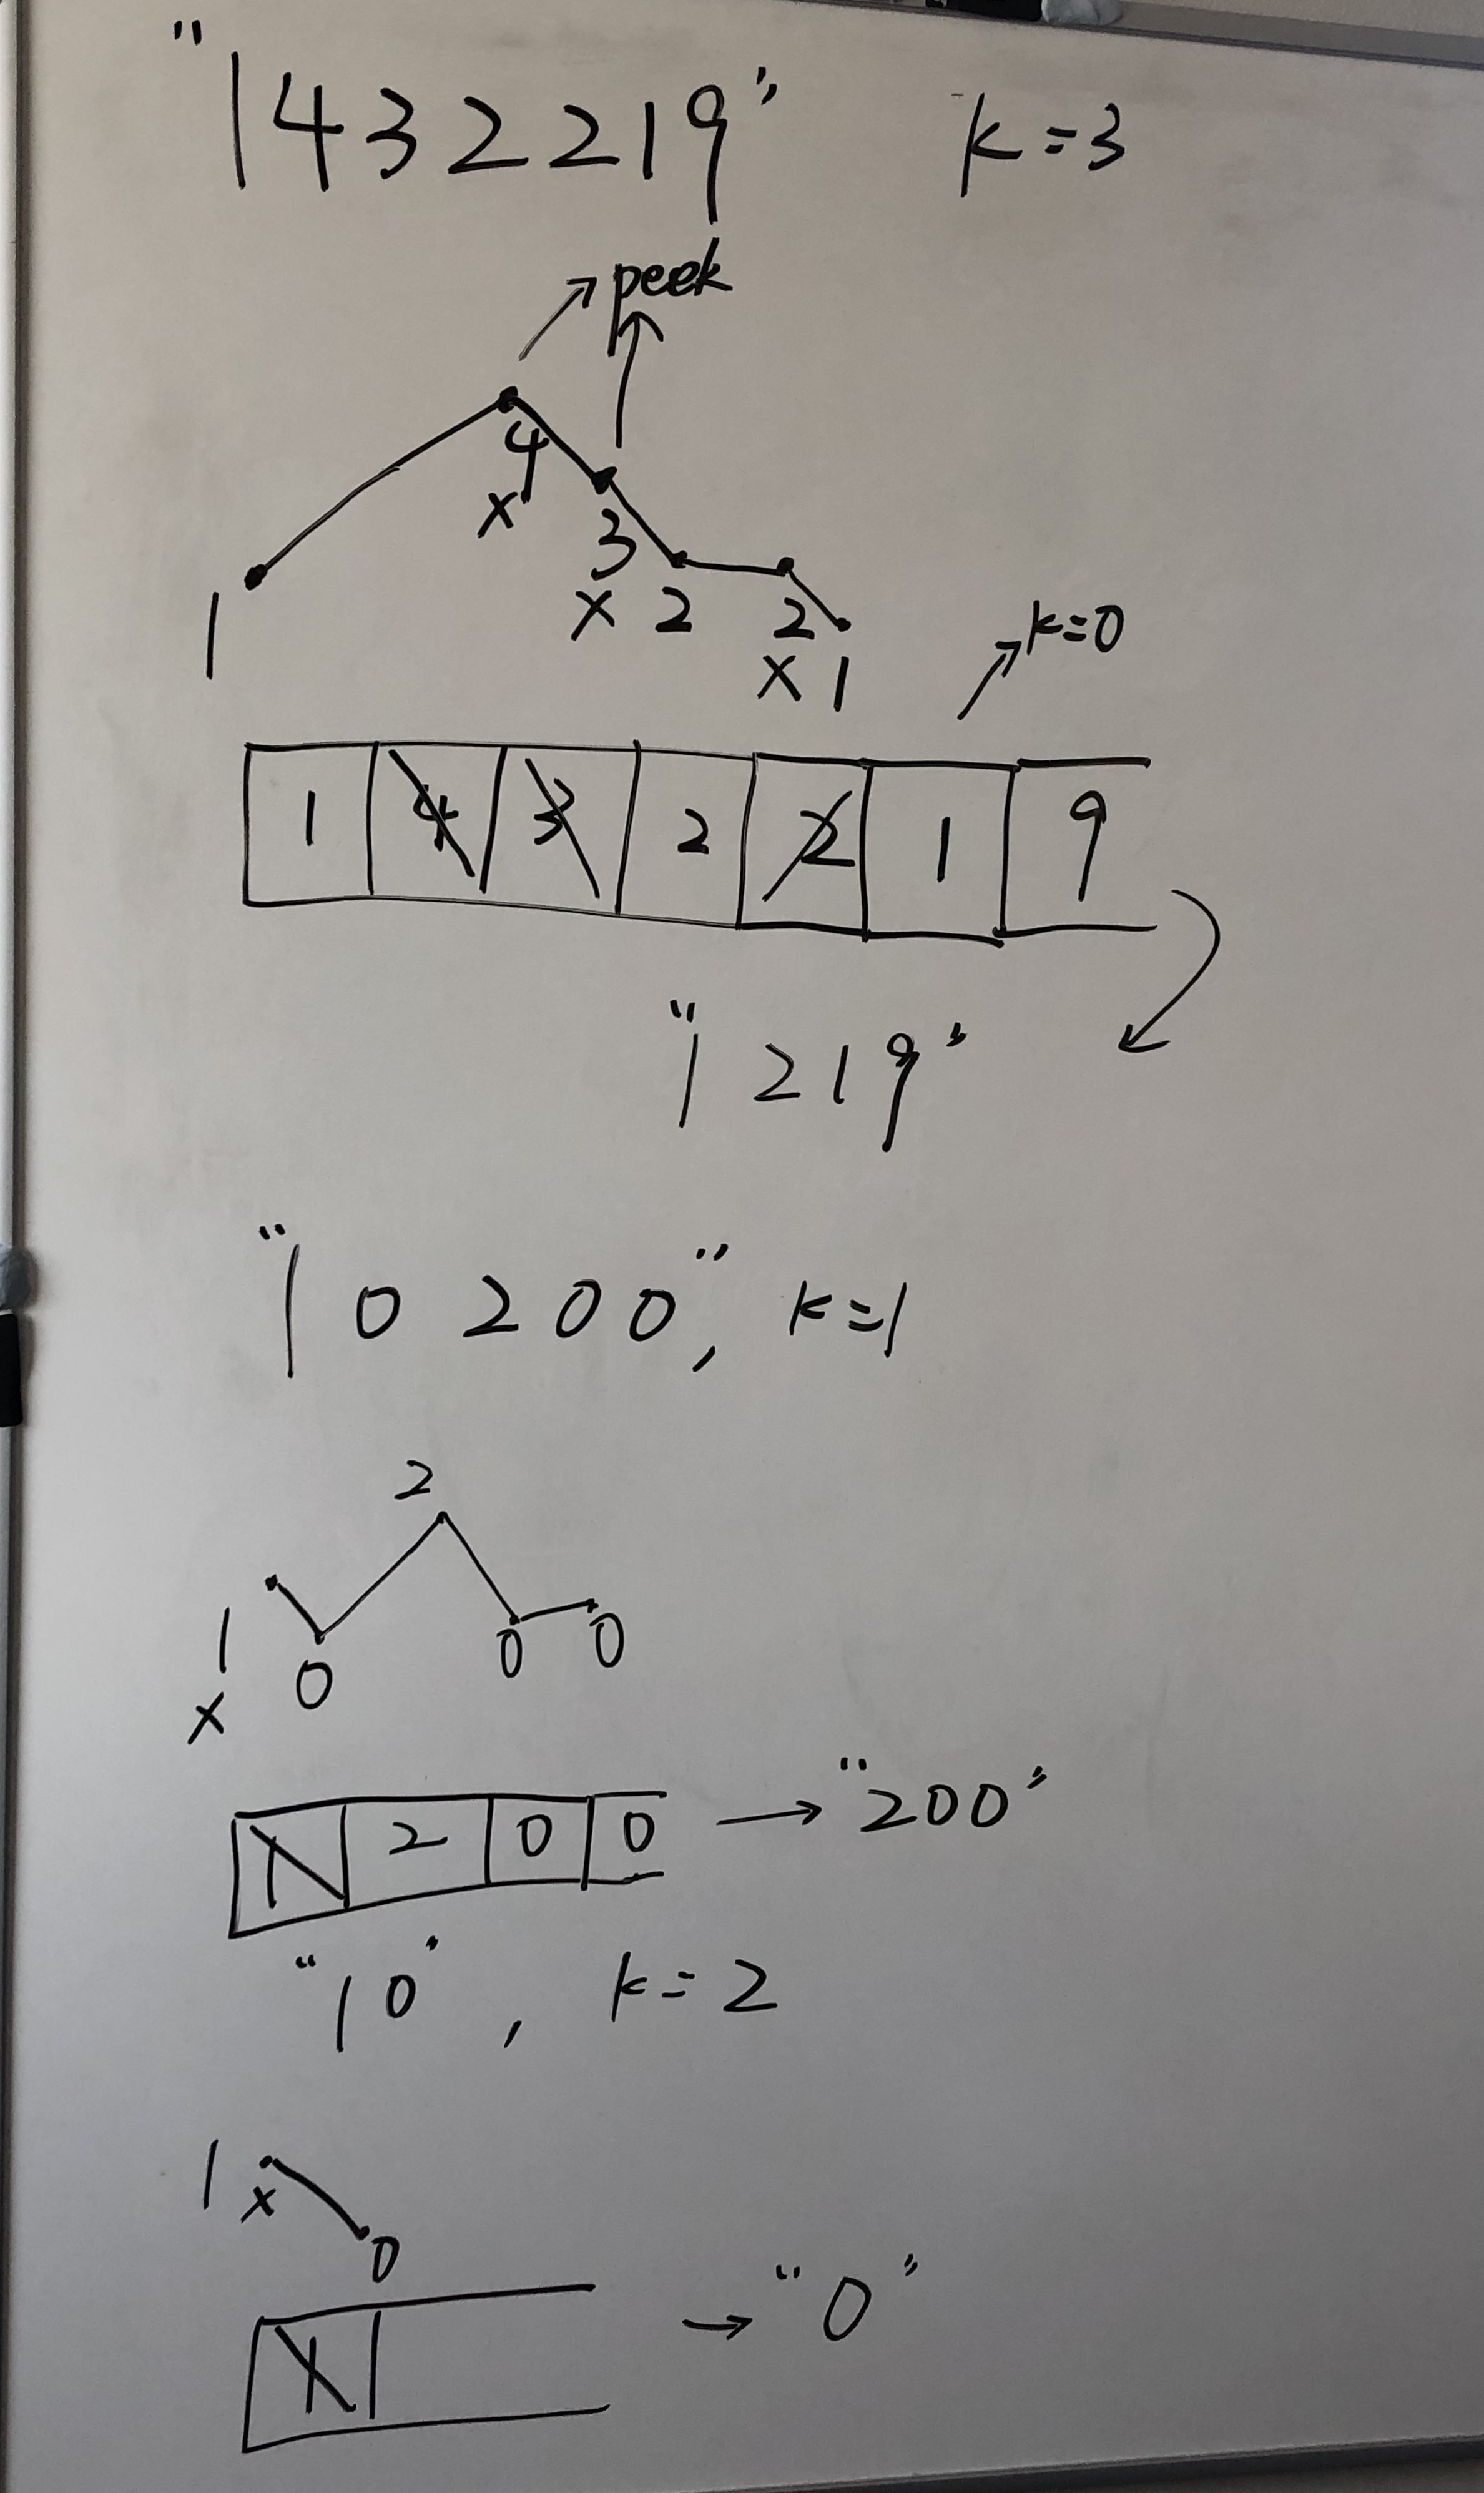 "1432219" k=3
peek
4
x
3
1 x 2 2
x 1 k=0
1 4 3 2 2 1 9
"1219"
"10200", k=1
2
1 0 0
x 0
1 2 0 0 → "200"
"10", k=2
1 x
0
1 → "0"